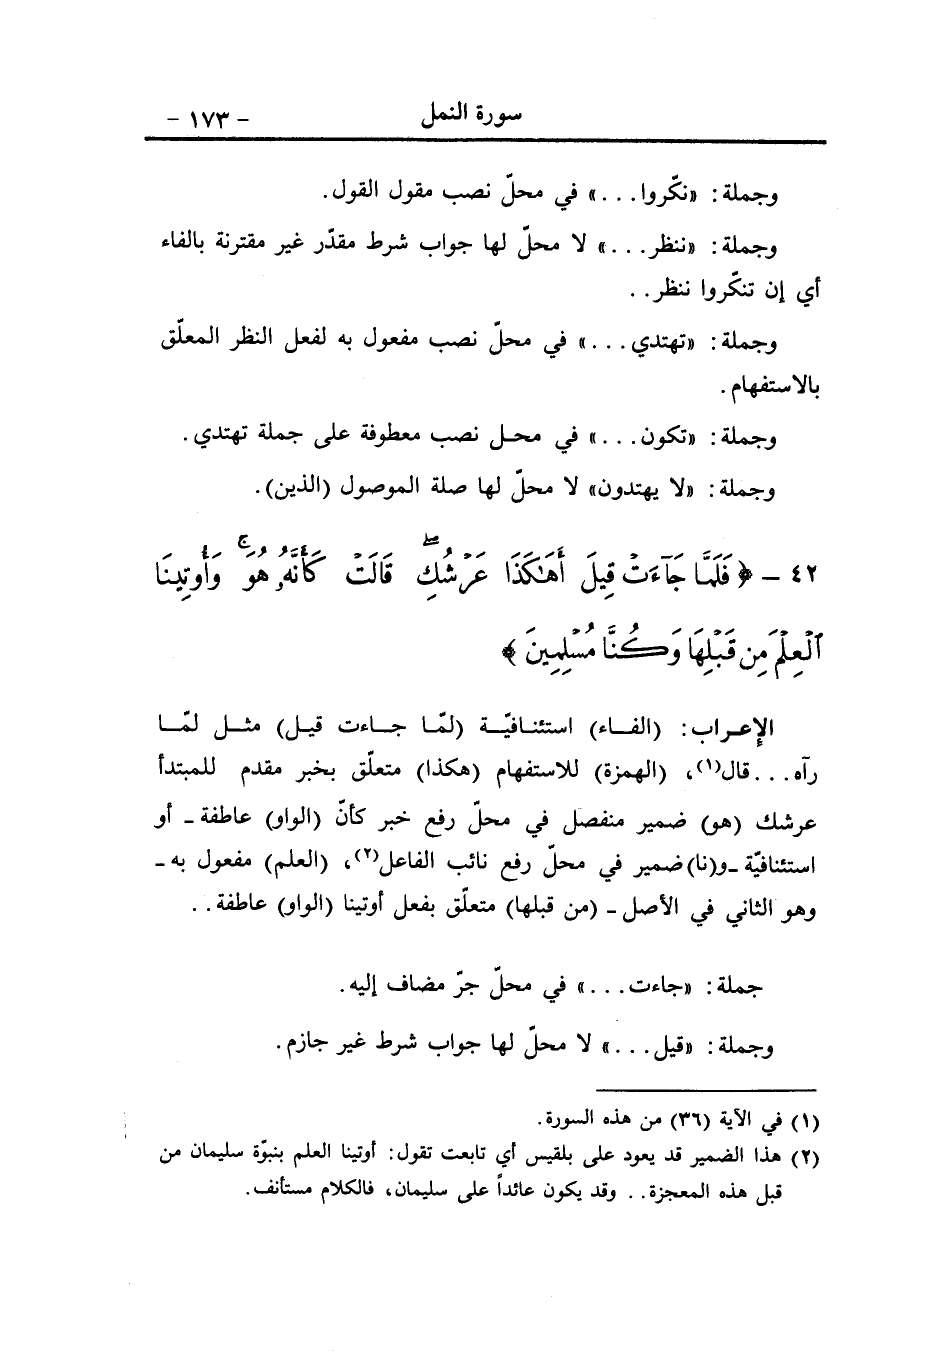 سورة النمل - ١٧٣ -
وجملة: «نكّروا...» في محلّ نصب مقول القول.
وجملة: «ننظر...» لا محلّ لها جواب شرط مقدّر غير مقترنة بالفاء
أي إن تنكّروا ننظر..
وجملة: «تهتدي...» في محلّ نصب مفعول به لفعل النظر المعلّق
بالاستفهام.
وجملة: «تكون...» في محل نصب معطوفة على جملة تهتدي.
وجملة: «لا يهتدون» لا محلّ لها صلة الموصول (الذين).
٤٢ - ﴿ فَلَمَّا جَآءَتْ قِيلَ أَهَٰكَذَا عَرْشُكِ ۖ قَالَتْ كَأَنَّهُۥ هُوَ ۚ وَأُوتِينَا
ٱلْعِلْمَ مِن قَبْلِهَا وَكُنَّا مُسْلِمِينَ ﴾
الإعراب: (الفاء) استئنافيّة (لمّا جاءت قيل) مثل لمّا
رآه...قال(١)، (الهمزة) للاستفهام (هكذا) متعلّق بخبر مقدم للمبتدأ
عرشك (هو) ضمير منفصل في محلّ رفع خبر كأنّ (الواو) عاطفة ـ أو
استئنافيّة ـ و(نا) ضمير في محلّ رفع نائب الفاعل(٢)، (العلم) مفعول به ـ
وهو الثاني في الأصل ـ (من قبلها) متعلّق بفعل أوتينا (الواو) عاطفة..
جملة: «جاءت...» في محلّ جرّ مضاف إليه.
وجملة: «قيل...» لا محلّ لها جواب شرط غير جازم.
(١) في الآية (٣٦) من هذه السورة.
(٢) هذا الضمير قد يعود على بلقيس أي تابعت تقول: أوتينا العلم بنبوّة سليمان من
قبل هذه المعجزة.. وقد يكون عائداً على سليمان، فالكلام مستأنف.